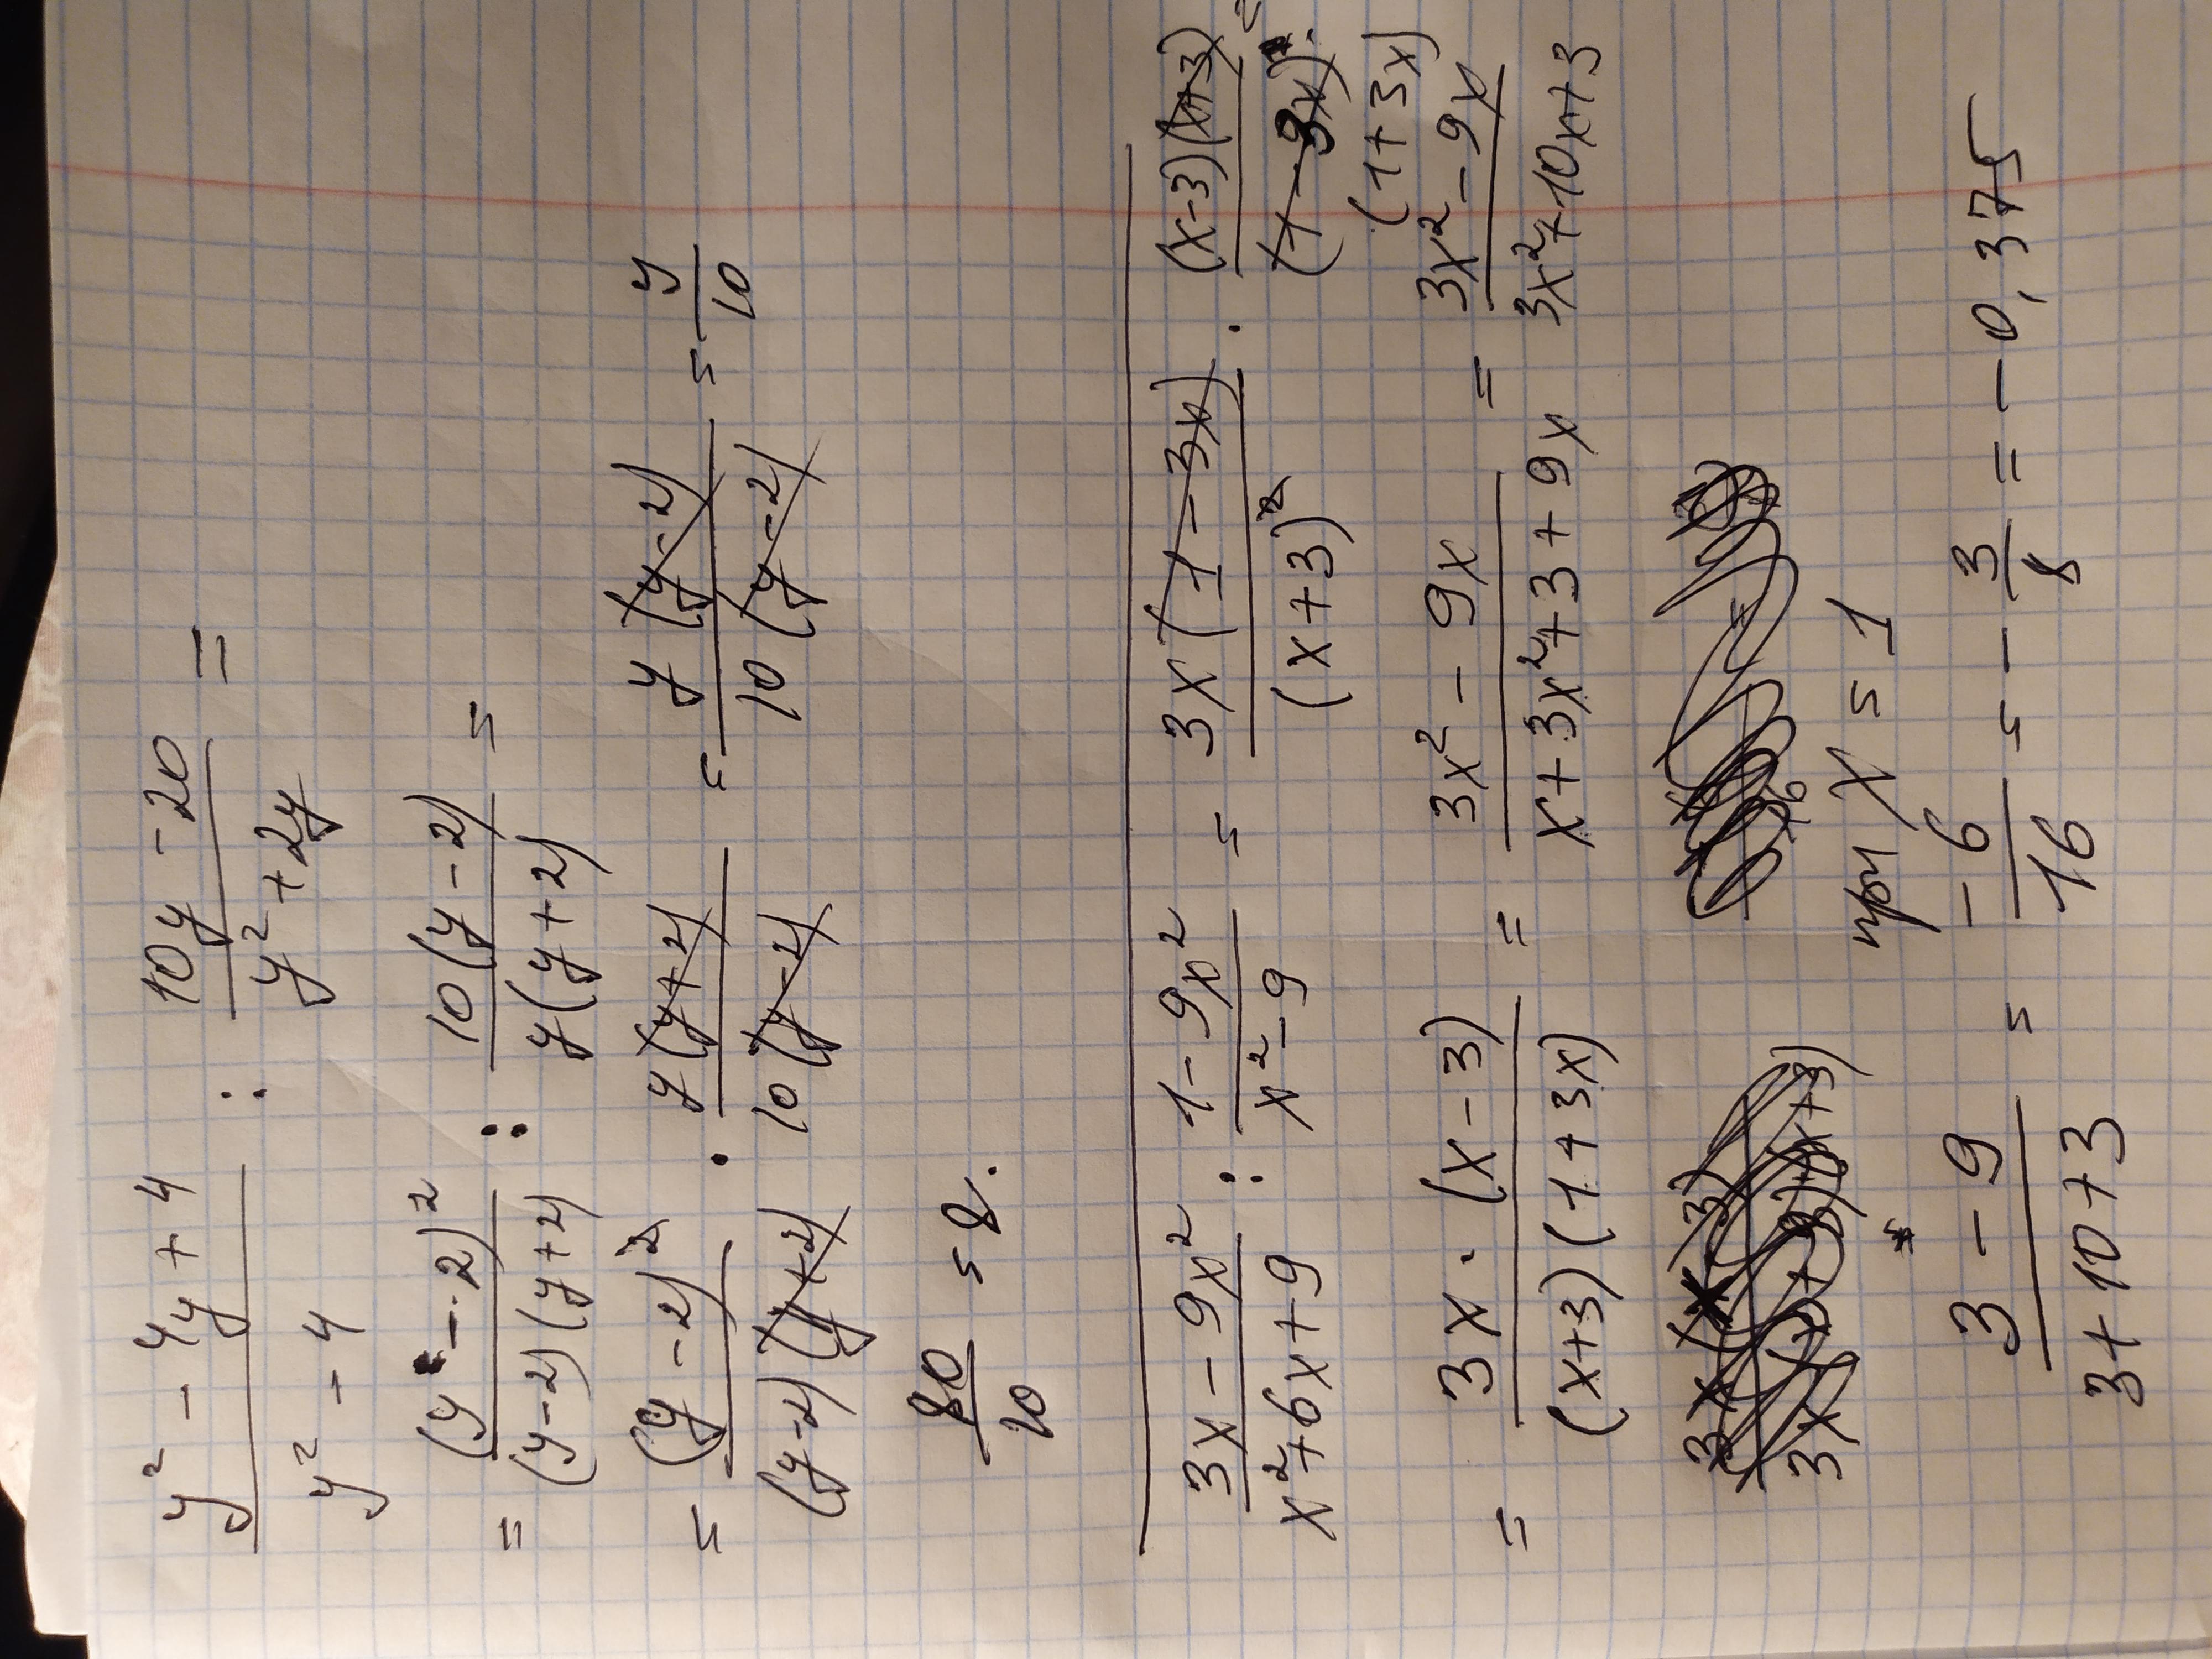 y² - 4y + 4 / y² - 4 : 10y - 20 / y² + 2y =
= (y - 2)² / (y-2)(y+2) : 10(y-2) / y(y+2) =
= (y-2)² / (y-2)(y+2) · y(y+2) / 10(y-2) = y(y-2) / 10(y-2) = y / 10
80 / 10 = 8.
3x - 9x² / x² + 6x + 9 : 1 - 9x² / x² - 9 = 3x(1 - 3x) / (x+3)² · (x-3)(x+3) / (1-3x)·(1+3x) =
= 3x · (x-3) / (x+3)(1+3x) = 3x² - 9x / x + 3x² + 3 + 9x = 3x² - 9x / 3x² + 10x + 3
при x = 1
3 - 9 / 3 + 10 + 3 = -6 / 16 = - 3 / 8 = - 0,375